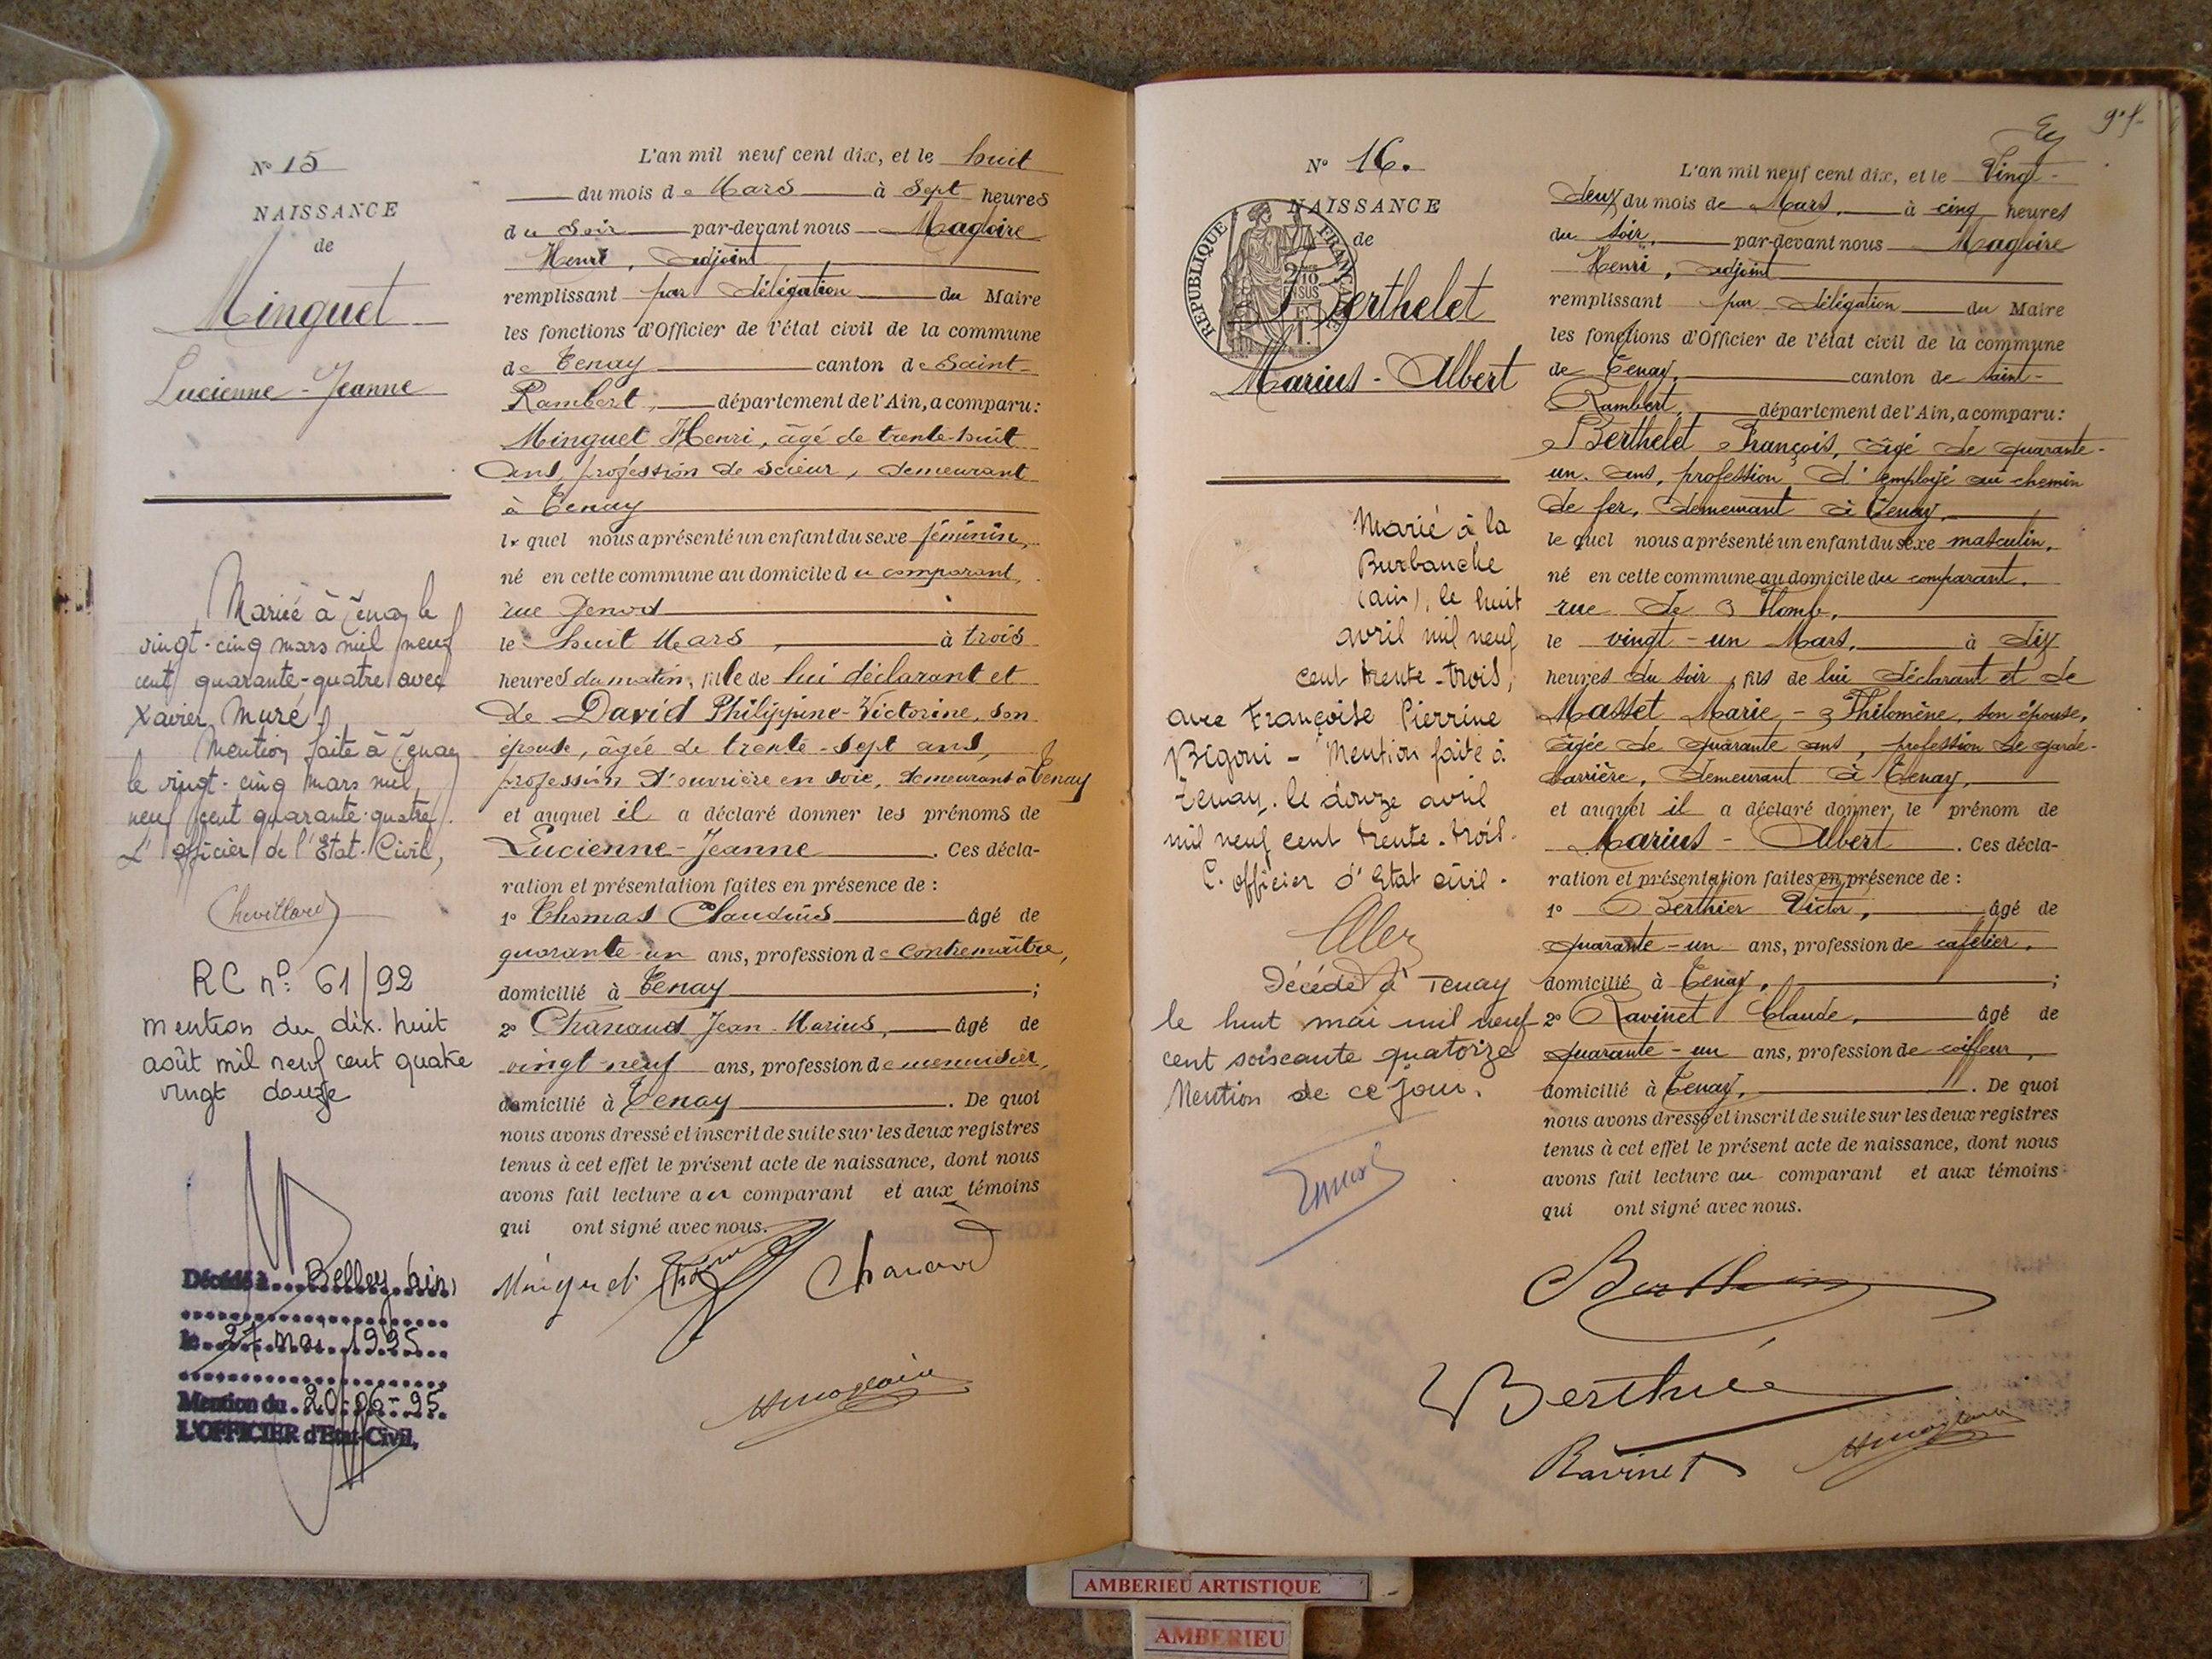 N° 15
NAISSANCE
de
Minguet
Lucienne - Jeanne
Mariée à Tenay le
vingt-cinq mars mil neuf
cent quarante-quatre avec
Xavier Mure
Mention faite à Tenay
le vingt-cinq mars mil
neuf cent quarante-quatre.
L'officier de l'Etat-Civil,
Chevillard
RC n° 61/92
mention du dix-huit
août mil neuf cent quatre
vingt douze
Décédé à Belley (ain)
le 27 mai 1995
Mention du 20-06-95
L'OFFICIER d'Etat-Civil,
L'an mil neuf cent dix, et le huit
du mois de Mars à Sept heures
du Soir par-devant nous Magloire
Henri, adjoint
remplissant par délégation du Maire
les fonctions d'Officier de l'état civil de la commune
de Tenay canton de Saint-
Rambert, département de l'Ain, a comparu:
Minguet Henri, âgé de trente-huit
ans, profession de scieur, demeurant
à Tenay
lequel nous a présenté un enfant du sexe féminin,
né en cette commune au domicile du comparant,
rue Genod
le huit Mars, à trois
heures du matin, fille de lui déclarant et
de David Philippine-Victorine, son
épouse, âgée de trente-sept ans,
profession d'ouvrière en soie, demeurant à Tenay
et auquel il a déclaré donner les prénoms de
Lucienne-Jeanne. Ces décla-
ration et présentation faites en présence de :
1° Thomas Claudius âgé de
quarante-un ans, profession de Contremaître,
domicilié à Tenay ;
2° Chanaud Jean-Marius, âgé de
vingt-neuf ans, profession de menuisier,
domicilié à Tenay. De quoi
nous avons dressé et inscrit de suite sur les deux registres
tenus à cet effet le présent acte de naissance, dont nous
avons fait lecture au comparant et aux témoins
qui ont signé avec nous.
Minguet Thomas Chanaud
Hmagloire
9 f.
N° 16.
NAISSANCE
de
RÉPUBLIQUE FRANÇAISE
Berthelet
Marius - Albert
Marié à la
Burbanche
(ain), le huit
avril mil neuf
cent trente-trois,
avec Françoise Pierrine
Bigoni - Mention faite à
Tenay. le douze avril
mil neuf cent trente-trois.
L'officier d'Etat civil.
Décédé à Tenay
le huit mai mil neuf
cent soixante quatorze
Mention de ce jour.
L'an mil neuf cent dix, et le Vingt-
deux du mois de Mars, à cinq heures
du soir, par-devant nous Magloire
Henri, adjoint
remplissant par délégation du Maire
les fonctions d'Officier de l'état civil de la commune
de Tenay, canton de Saint-
Rambert, département de l'Ain, a comparu:
Berthelet François, âgé de quarante-
un. ans, profession d'employé au chemin
de fer, demeurant à Tenay,
lequel nous a présenté un enfant du sexe masculin,
né en cette commune au domicile du comparant,
rue de
le vingt-un Mars, à dix
heures du soir, fils de lui déclarant et de
Masset Marie-Philomène, son épouse,
âgée de quarante ans, profession de garde-
barrière, demeurant à Tenay,
et auquel il a déclaré donner le prénom de
Marius - Albert. Ces décla-
ration et présentation faites en présence de :
1° Berthier Victor, âgé de
quarante-un ans, profession de cafetier,
domicilié à Tenay, ;
2° Ravinet Claude, âgé de
quarante-un ans, profession de coiffeur,
domicilié à Tenay,. De quoi
nous avons dressé et inscrit de suite sur les deux registres
tenus à cet effet le présent acte de naissance, dont nous
avons fait lecture au comparant et aux témoins
qui ont signé avec nous.
Ravinet
Hmagloire
AMBERIEU ARTISTIQUE
AMBERIEU